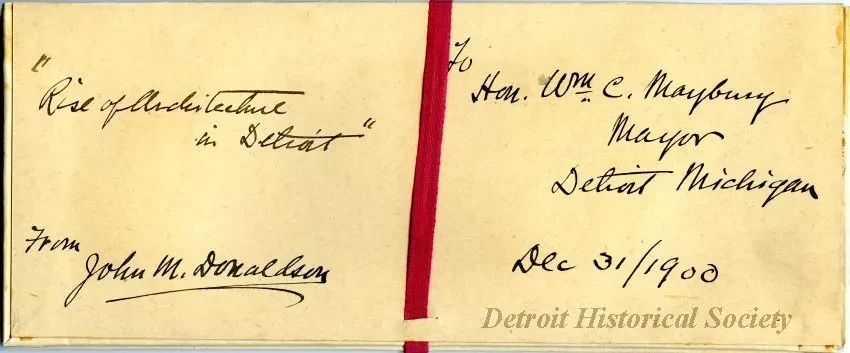 "
Rise of Architecture
in Detroit"
From
John M. Donaldson
To
Hon. Wm. C. Maybury
Mayor
Detroit Michigan
Dec 31/1900
Detroit Historical Society